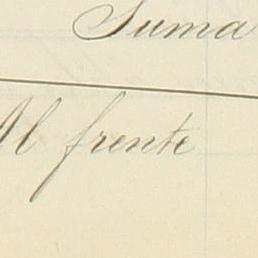 Suma
Al frente